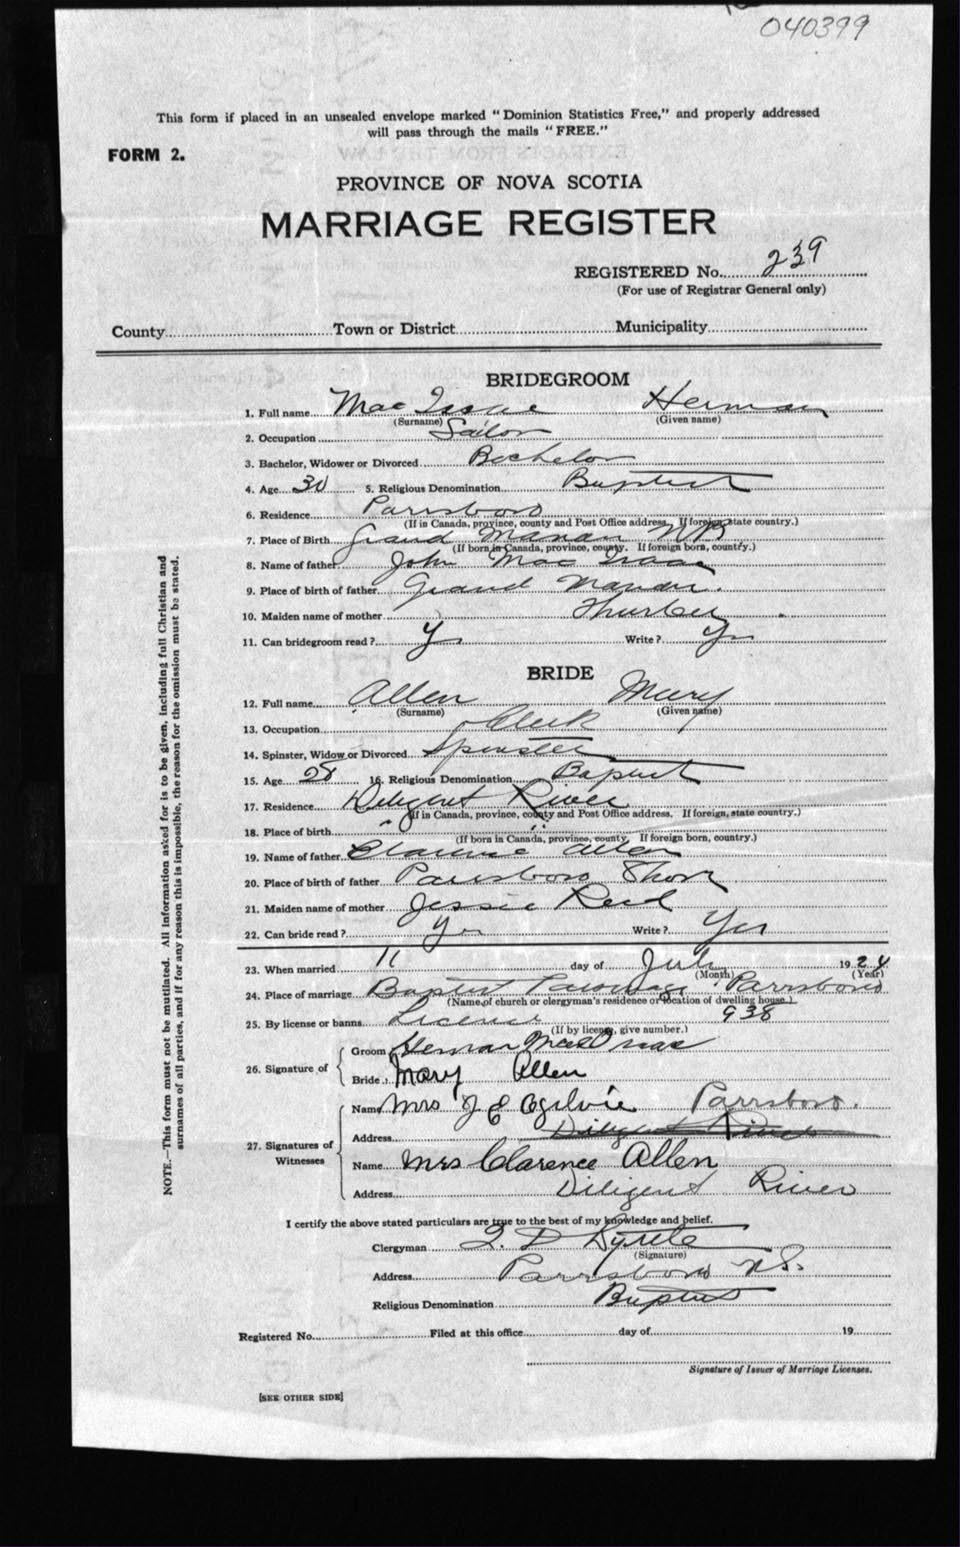 040399
This form if placed in an unsealed envelope marked "Dominion Statistics Free," and properly addressed
will pass through the mails "FREE."
FORM 2.
PROVINCE OF NOVA SCOTIA
MARRIAGE REGISTER
REGISTERED No. 239
(For use of Registrar General only)
County Town or District Municipality
BRIDEGROOM
1. Full name Mac Isaac Herman
(Surname) (Given name)
2. Occupation Sailor
3. Bachelor, Widower or Divorced Bachelor
4. Age 30 5. Religious Denomination Baptist
6. Residence Parrsboro
(If in Canada, province, county and Post Office address. If foreign, state country.)
7. Place of Birth Grand Manan NB
(If born in Canada, province, county. If foreign born, country.)
8. Name of father John Mac Isaac
9. Place of birth of father Grand Manan.
10. Maiden name of mother
11. Can bridegroom read? Yes Write? Yes
BRIDE
12. Full name Allen Mary
(Surname) (Given name)
13. Occupation Clerk
14. Spinster, Widow or Divorced Spinster
15. Age 28 16. Religious Denomination Baptist
17. Residence Diligent River
(If in Canada, province, county and Post Office address. If foreign, state country.)
18. Place of birth " "
(If born in Canada, province, county. If foreign born, country.)
19. Name of father Clarence Allen
20. Place of birth of father Parrsboro Shore
21. Maiden name of mother Jessie Reid
22. Can bride read? Yes Write? Yes
23. When married 11 day of July 1924
(Month) (Year)
24. Place of marriage Baptist Parsonage Parrsboro
(Name of church or clergyman's residence or location of dwelling house.)
25. By license or banns License 938
(If by license, give number.)
26. Signature of
Groom Herman MacIsaac
Bride Mary Allen
27. Signatures of Witnesses
Name Mrs J E Ogilvie Parrsboro.
Address Diligent River
Name Mrs Clarence Allen
Address Diligent River
I certify the above stated particulars are true to the best of my knowledge and belief.
Clergyman
(Signature)
Address Parrsboro N.S.
Religious Denomination Baptist
Registered No. Filed at this office day of 19
Signature of Issuer of Marriage Licenses.
[SEE OTHER SIDE]
NOTE.—This form must not be mutilated. All information asked for is to be given, including full Christian and
surnames of all parties, and if for any reason this is impossible, the reason for the omission must be stated.